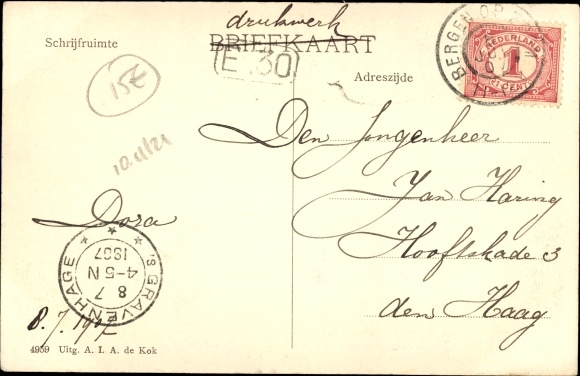 drukwerk
BRIEFKAART
Schrijfruimte
E 30
Adreszijde
BERGEN OP
NEDERLAND
1
CENT
15€
10.11/21
Den Jongenheer
Jan Haring
Hooftskade 3
den Haag
Dora
's GRAVENHAGE
8 7
4-5 N
1907
8.7.1907
4959 Uitg. A. I. A. de Kok